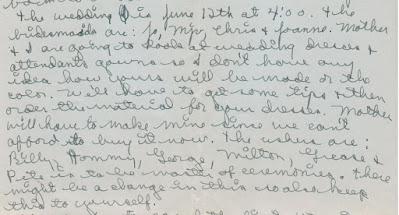 the wedding is June 12th at 4:00. & the
bridesmaids are: Jo, Mip, Chris & Joanne. Mother
& I are going to look at wedding dresses &
attendants gowns so I don't have any
idea how yours will be made or the
color. We'll have to get some tips & then
order the material for your dresses. Mother
will have to make mine since we can't
afford to buy it now. The ushers are:
Billy, Tommy, George, Milton, Grease &
Pete is to be master of ceremonies. There
might be a change in this so also keep
this to yourself.